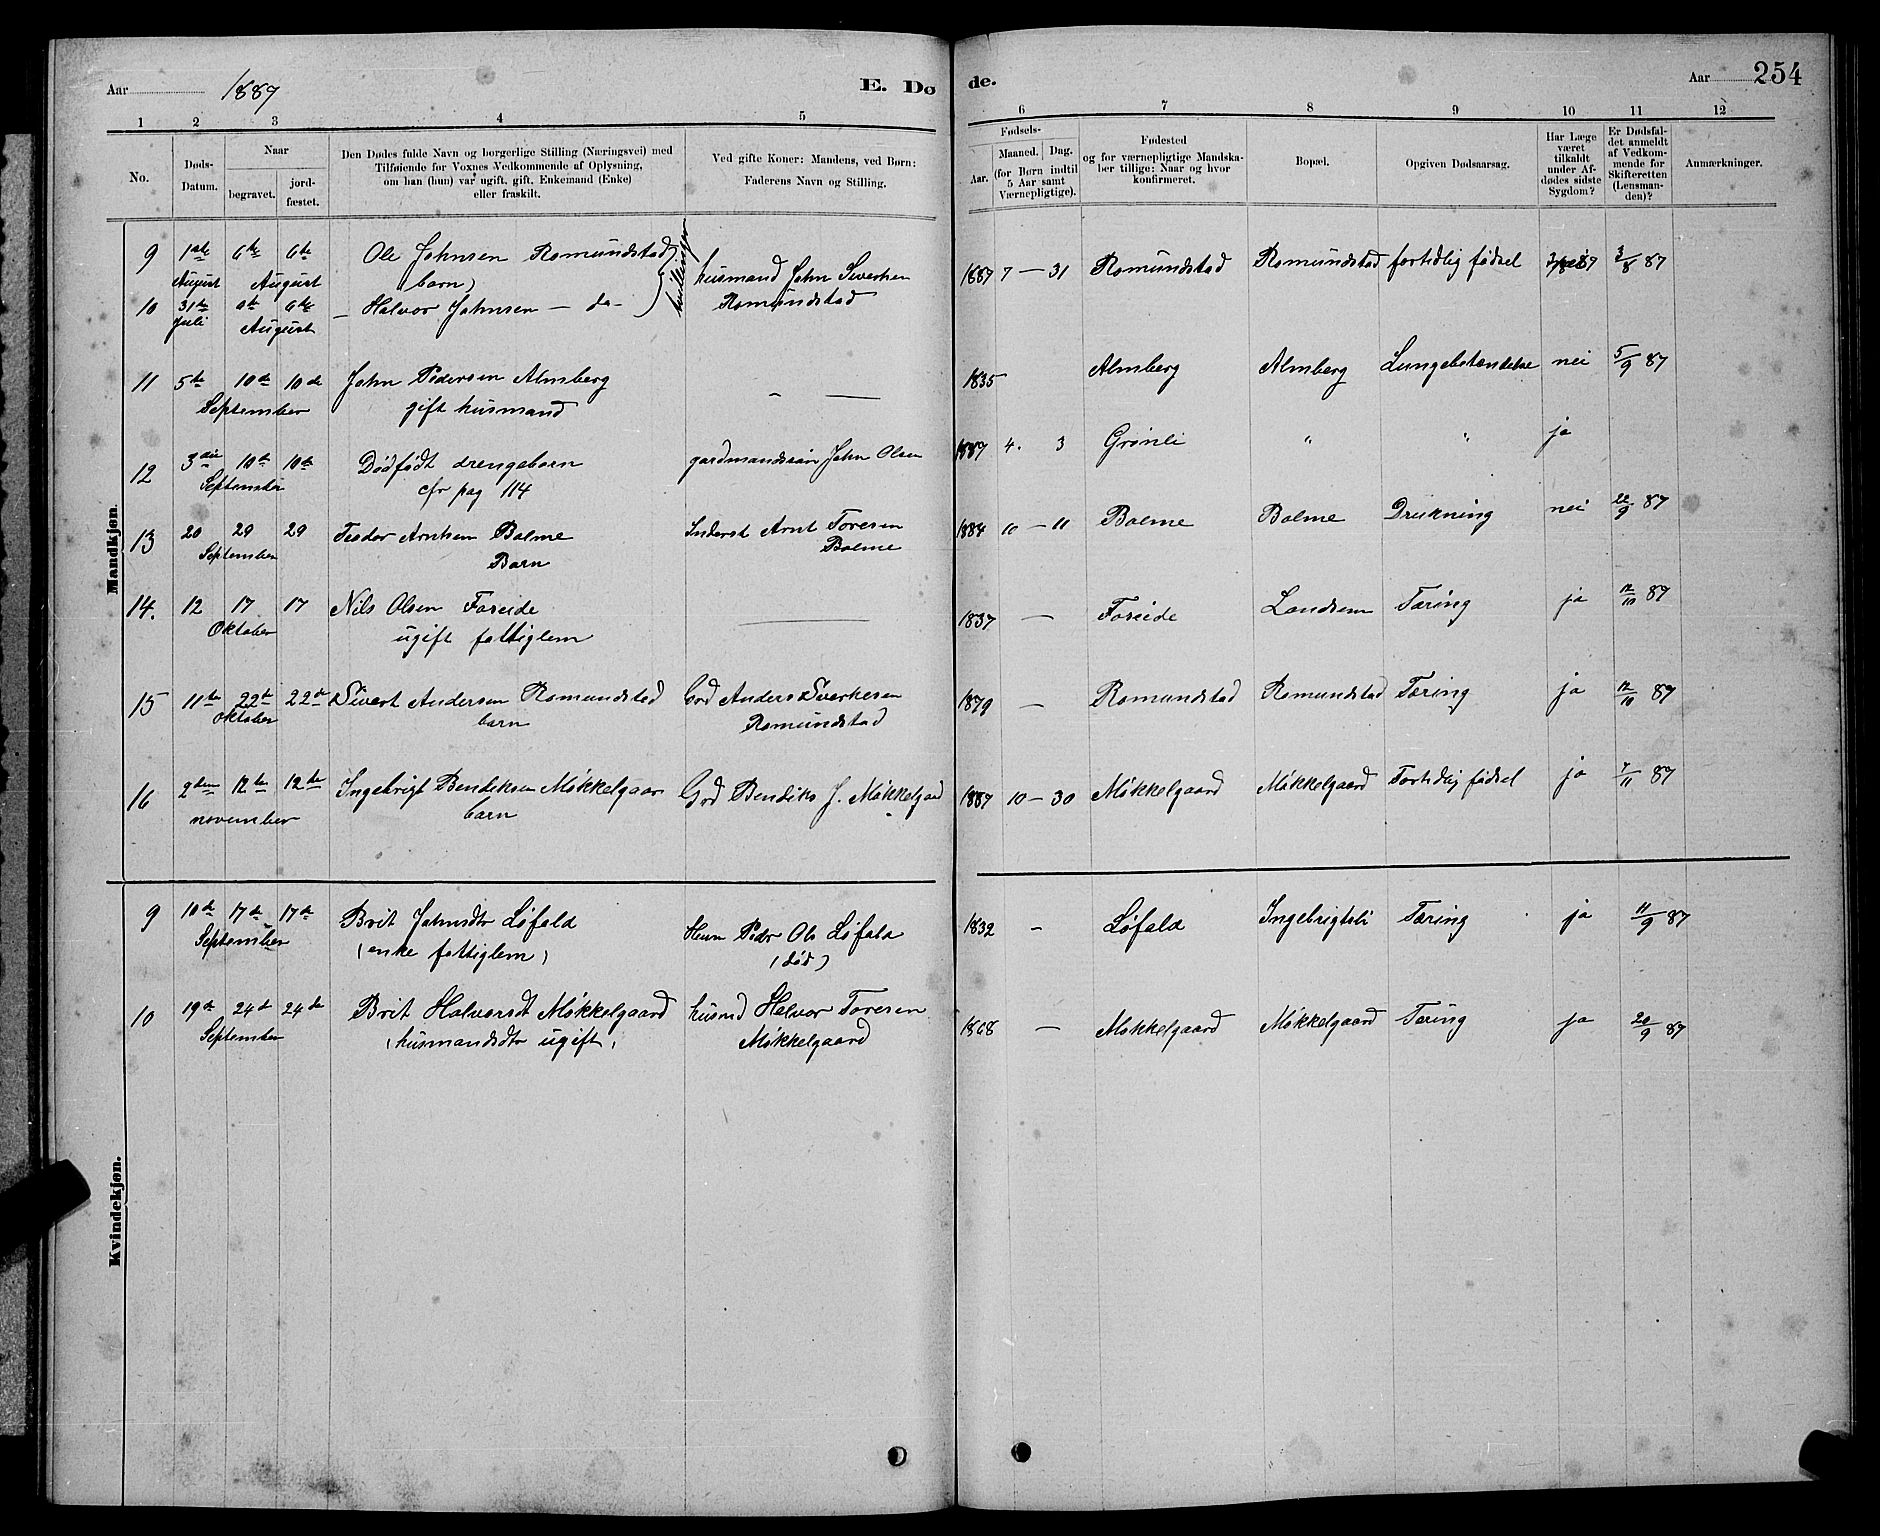 Aar 1887
E. Dø
de.
Aar 254
1 2 3 4 5 6 7 8 9 10 11 12
No.
Døds-
Datum.
Naar
begravet.
jord-
fæstet.
Den Dødes fulde Navn og borgerlige Stilling (Næringsvei) med
Tilføiende for Voxnes Vedkommende af Oplysning,
om han (hun) var ugift, gift, Enkemand (Enke)
eller fraskilt.
Ved gifte Koner: Mandens, ved Børn:
Faderens Navn og Stilling.
Fødsels-
Aar.
Maaned. Dag.
(for Børn indtil
5 Aar samt
Værnepligtige).
Fødested
og for værnepligtige Mandska-
ber tillige: Naar og hvor
konfirmeret.
Bopæl.
Opgiven Dødsaarsag.
Har Læge
været
tilkaldt
under Af-
dødes sidste
Sygdom?
Er Dødsfal-
det anmeldt
af Vedkom-
mende for
Skifteretten
(Lensman-
den)?
Anmærkninger.
Mandkjøn.
9 1ste 6te 6te Ole Johnsen Romundstad husmand John Sivertsen 1887 7 — 31 Romundstad Romundstad fortidlig fødsel 3/8 87
August August barn) Romundstad
tvillinger
10 31te 6te 6te — Halvor Johnsen — do —
Juli August
11 5te 10de 10de John Pedersen Almberg — 1835 Almberg Almberg Lungebetændelse nei 5/9 87
September gift husmand
12 3die 10de 10de Dødfødt drengebarn gardmandssøn John Olsen 1887 4. 3 Grønli " " ja
September cfr pag 114
13 20 29 29 Teodor Arntsen Bolme Inderst Arnt Toresen 1884 10 — 11 Bolme Bolme Drukning nei 22/9 87
September Barn Bolme
14. 12 17 17 Nils Olsen Foseide — 1837 — Foseide Landsem Tæring ja 12/10 87
Oktober ugift fattiglem
15 11te 22de 22de Sivert Andersen Romundstad Grd Anders Sivertsen 1879 — Romundstad Romundstad Tæring ja 12/10 87
Oktober barn Romundstad
16 2den 12te 12te Ingebrigt Bendiksen Møkkelgaar Grd Bendiks J. Møkkelgaard 1887 10 — 30 Møkkelgaard Møkkelgaard Fortidlig fødsel ja 7/11 87
november barn
Kvindekjøn.
9 10de 17de 17de Brit Johnsdtr Løfald Husm Pedr Ols Løfald 1832 — Løfald Ingebrigtsli Tæring ja 11/9 87
September (enke fattiglem) (død)
10 19de 24de 24de Brit Halvorsdt Møkkelgaard husmd Halvor Toresen 1868 — Møkkelgaard Møkkelgaard Tæring ja 20/9 87
September (husmandsdtr ugift) Møkkelgaard